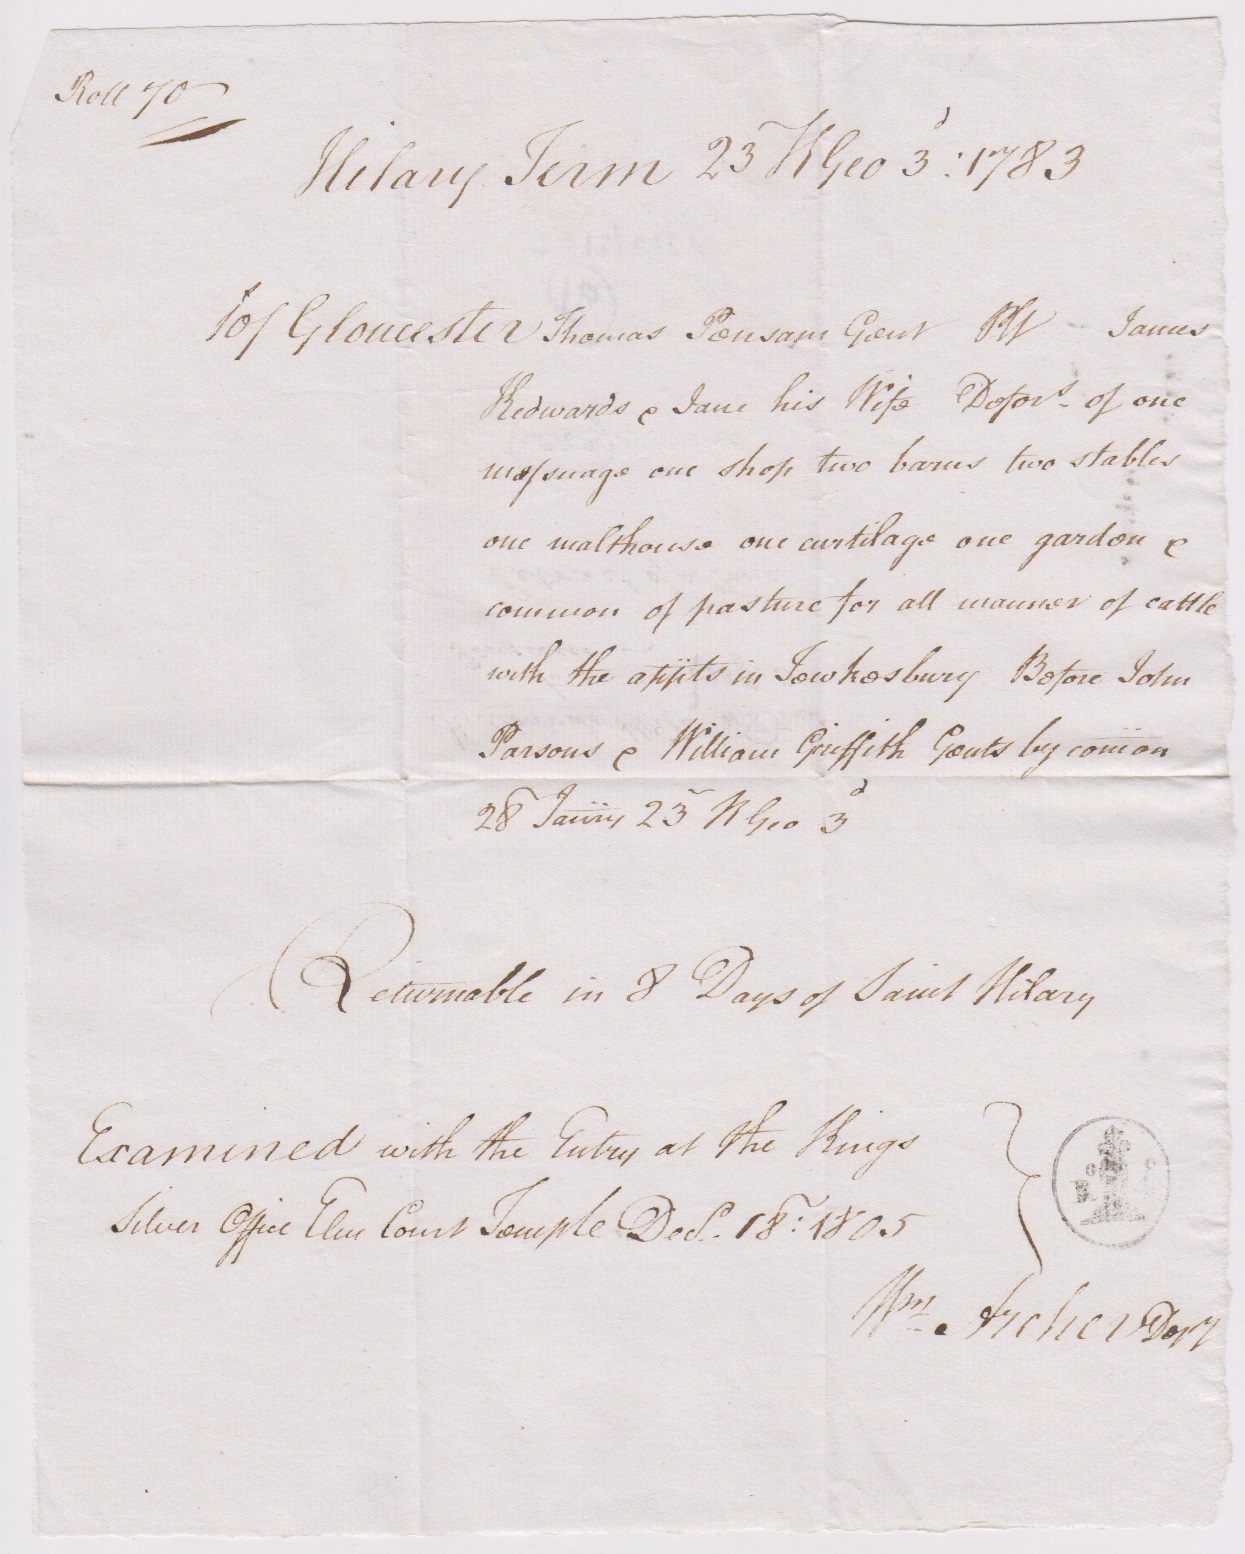 Roll 70
Hilary Term 23 K Geo 3d: 1783
Gloucester Thomas Pensam Gent Plf James
Kedwards & Jane his Wife Deforts of one
messuage one shop two barns two stables
one malthouse one curtilage one garden &
common of pasture for all manner of cattle
with the appts in Tewkesbury Before John
Parsons & William Griffith Gents by comon
28 Janry 23 K Geo 3d
Returnable in 8 Days of Saint Hilary
Examined with the Entry at the Kings
Silver Office Elm Court Temple Decr. 18: 1805
Wm. Archer Depy